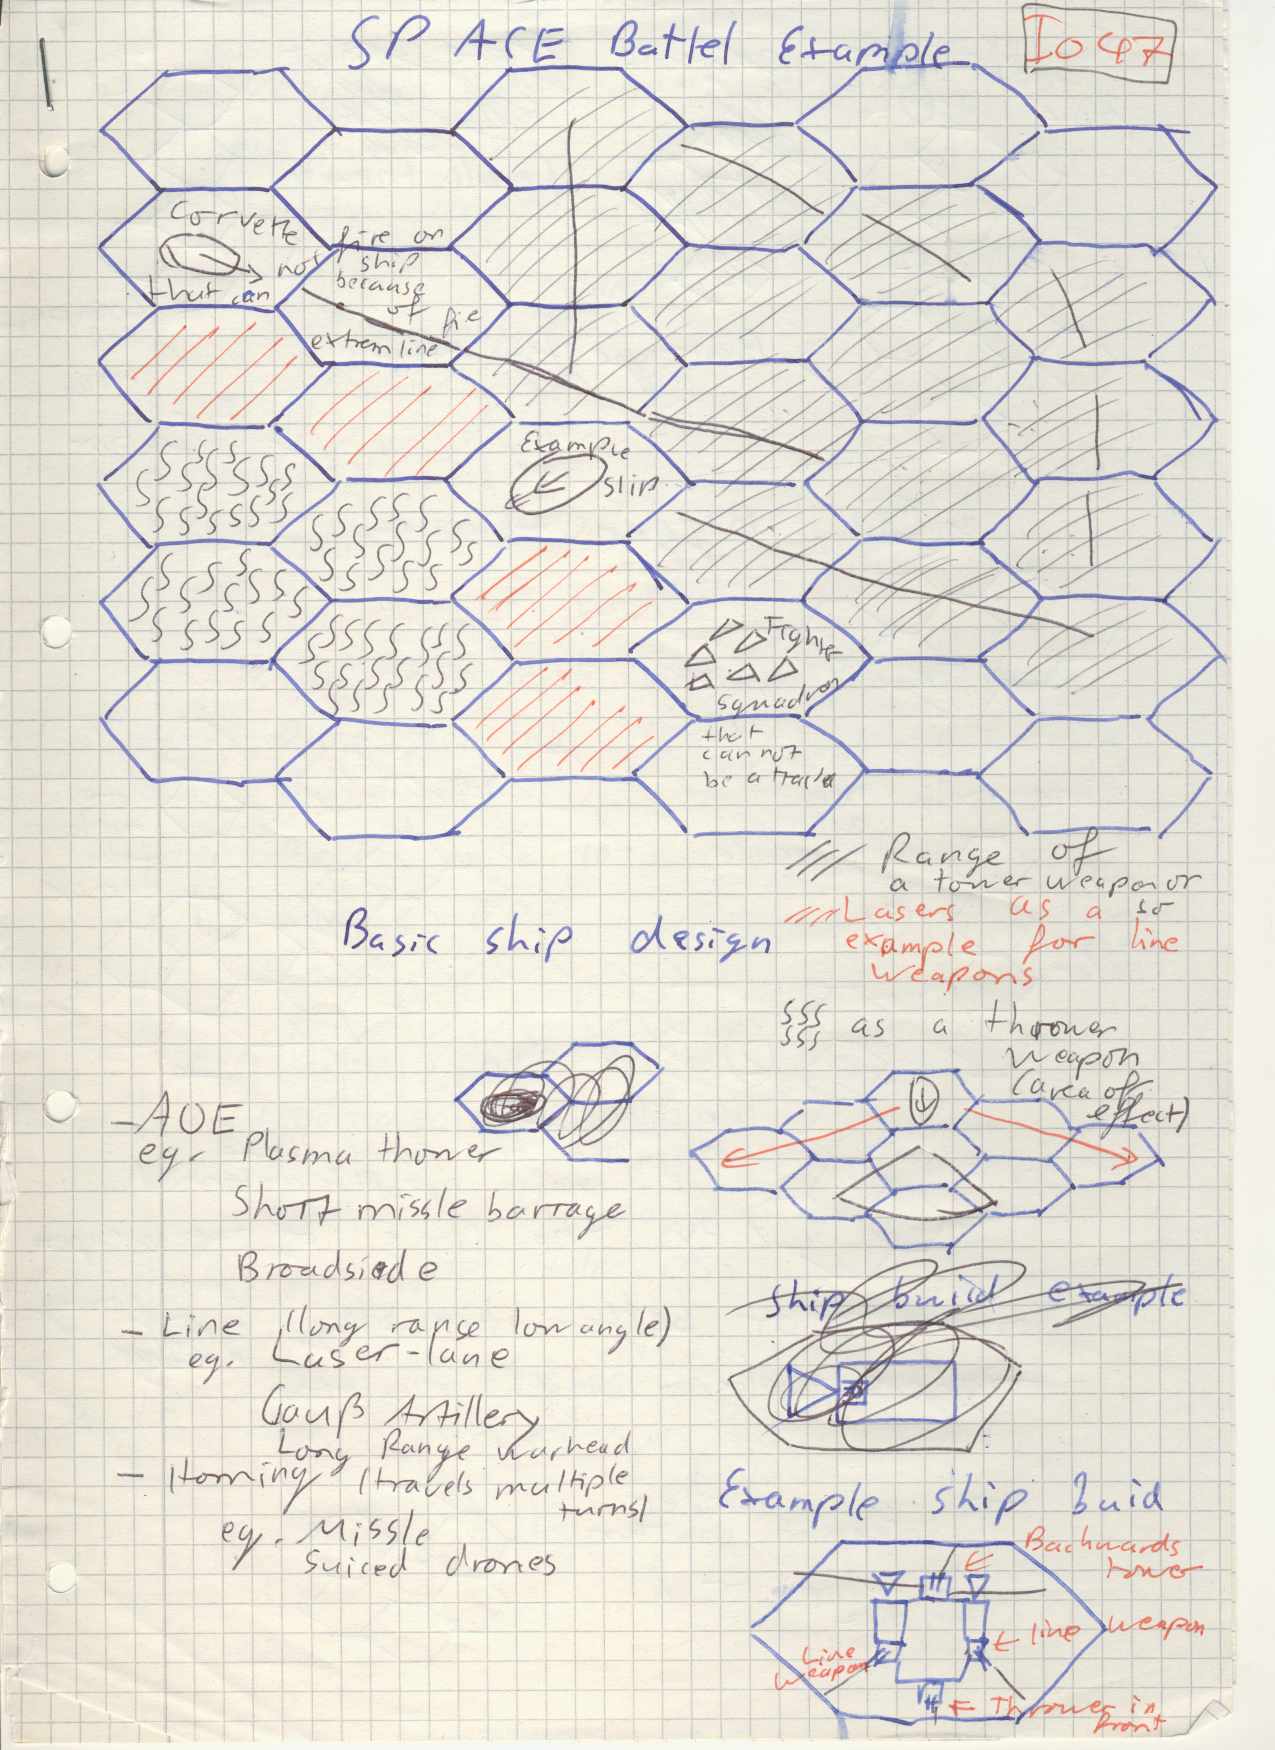 SPACE Battel Example
Io 47
Corvette
that can
not fire or
ship
because
of fie
extrem line
Example
slip
Fighter
squadron
that
can not
be a tracta
Range of
a tower weapon or
so
Lasers as a
example for line
weapons
as a thrower
weapon
(area of
effect)
Basic ship design
- AOE
eg. Plasma thower
Short missle barrage
Broadside
- Line (long range low angle)
eg. Laser-lane
Gauß Artillery
Long Range warhead
- Homing (travels multiple
turns)
eg. Missle
Suiced drones
ship build example
Example ship Buid
Backwards
tower
line weapon
Line
weapon
Thrower in
front